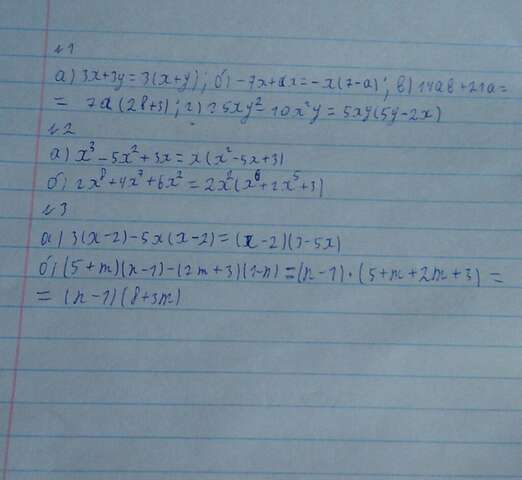 №1
а) 3x+3y=3(x+y); б) -7x+ax=-x(7-a); в) 14ab+21a=
= 7a(2b+3); г) 25xy²-10x²y=5xy(5y-2x)
№2
а) x³-5x²+3x=x(x²-5x+3)
б) 2x⁸+4x⁷+6x²=2x²(x⁶+2x⁵+3)
№3
а) 3(x-2)-5x(x-2)=(x-2)(3-5x)
б) (5+m)(n-1)-(2m+3)(1-n)=(n-1)·(5+m+2m+3)=
= (n-1)(8+3m)